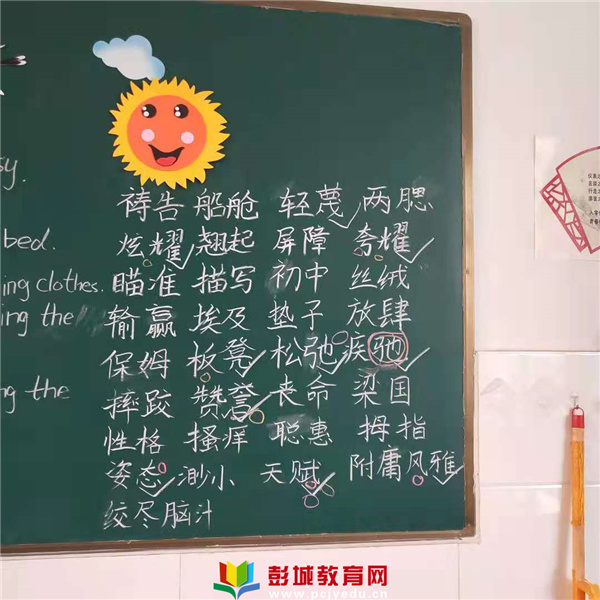 sy.
bed.
ing clothes.
ing the
ng the
祷告 船舱 轻蔑 两腮
炫耀 翘起 屏障 夸耀
瞄准 描写 初中 丝绒
输赢 埃及 垫子 放肆
保姆 板凳 松弛 疾驰
摔跤 赞誉 丧命 梁国
性格 搔痒 聪惠 拇指
姿态 渺小 天赋 附庸风雅
绞尽脑汁
彭城教育网
www.pcjyedu.cn